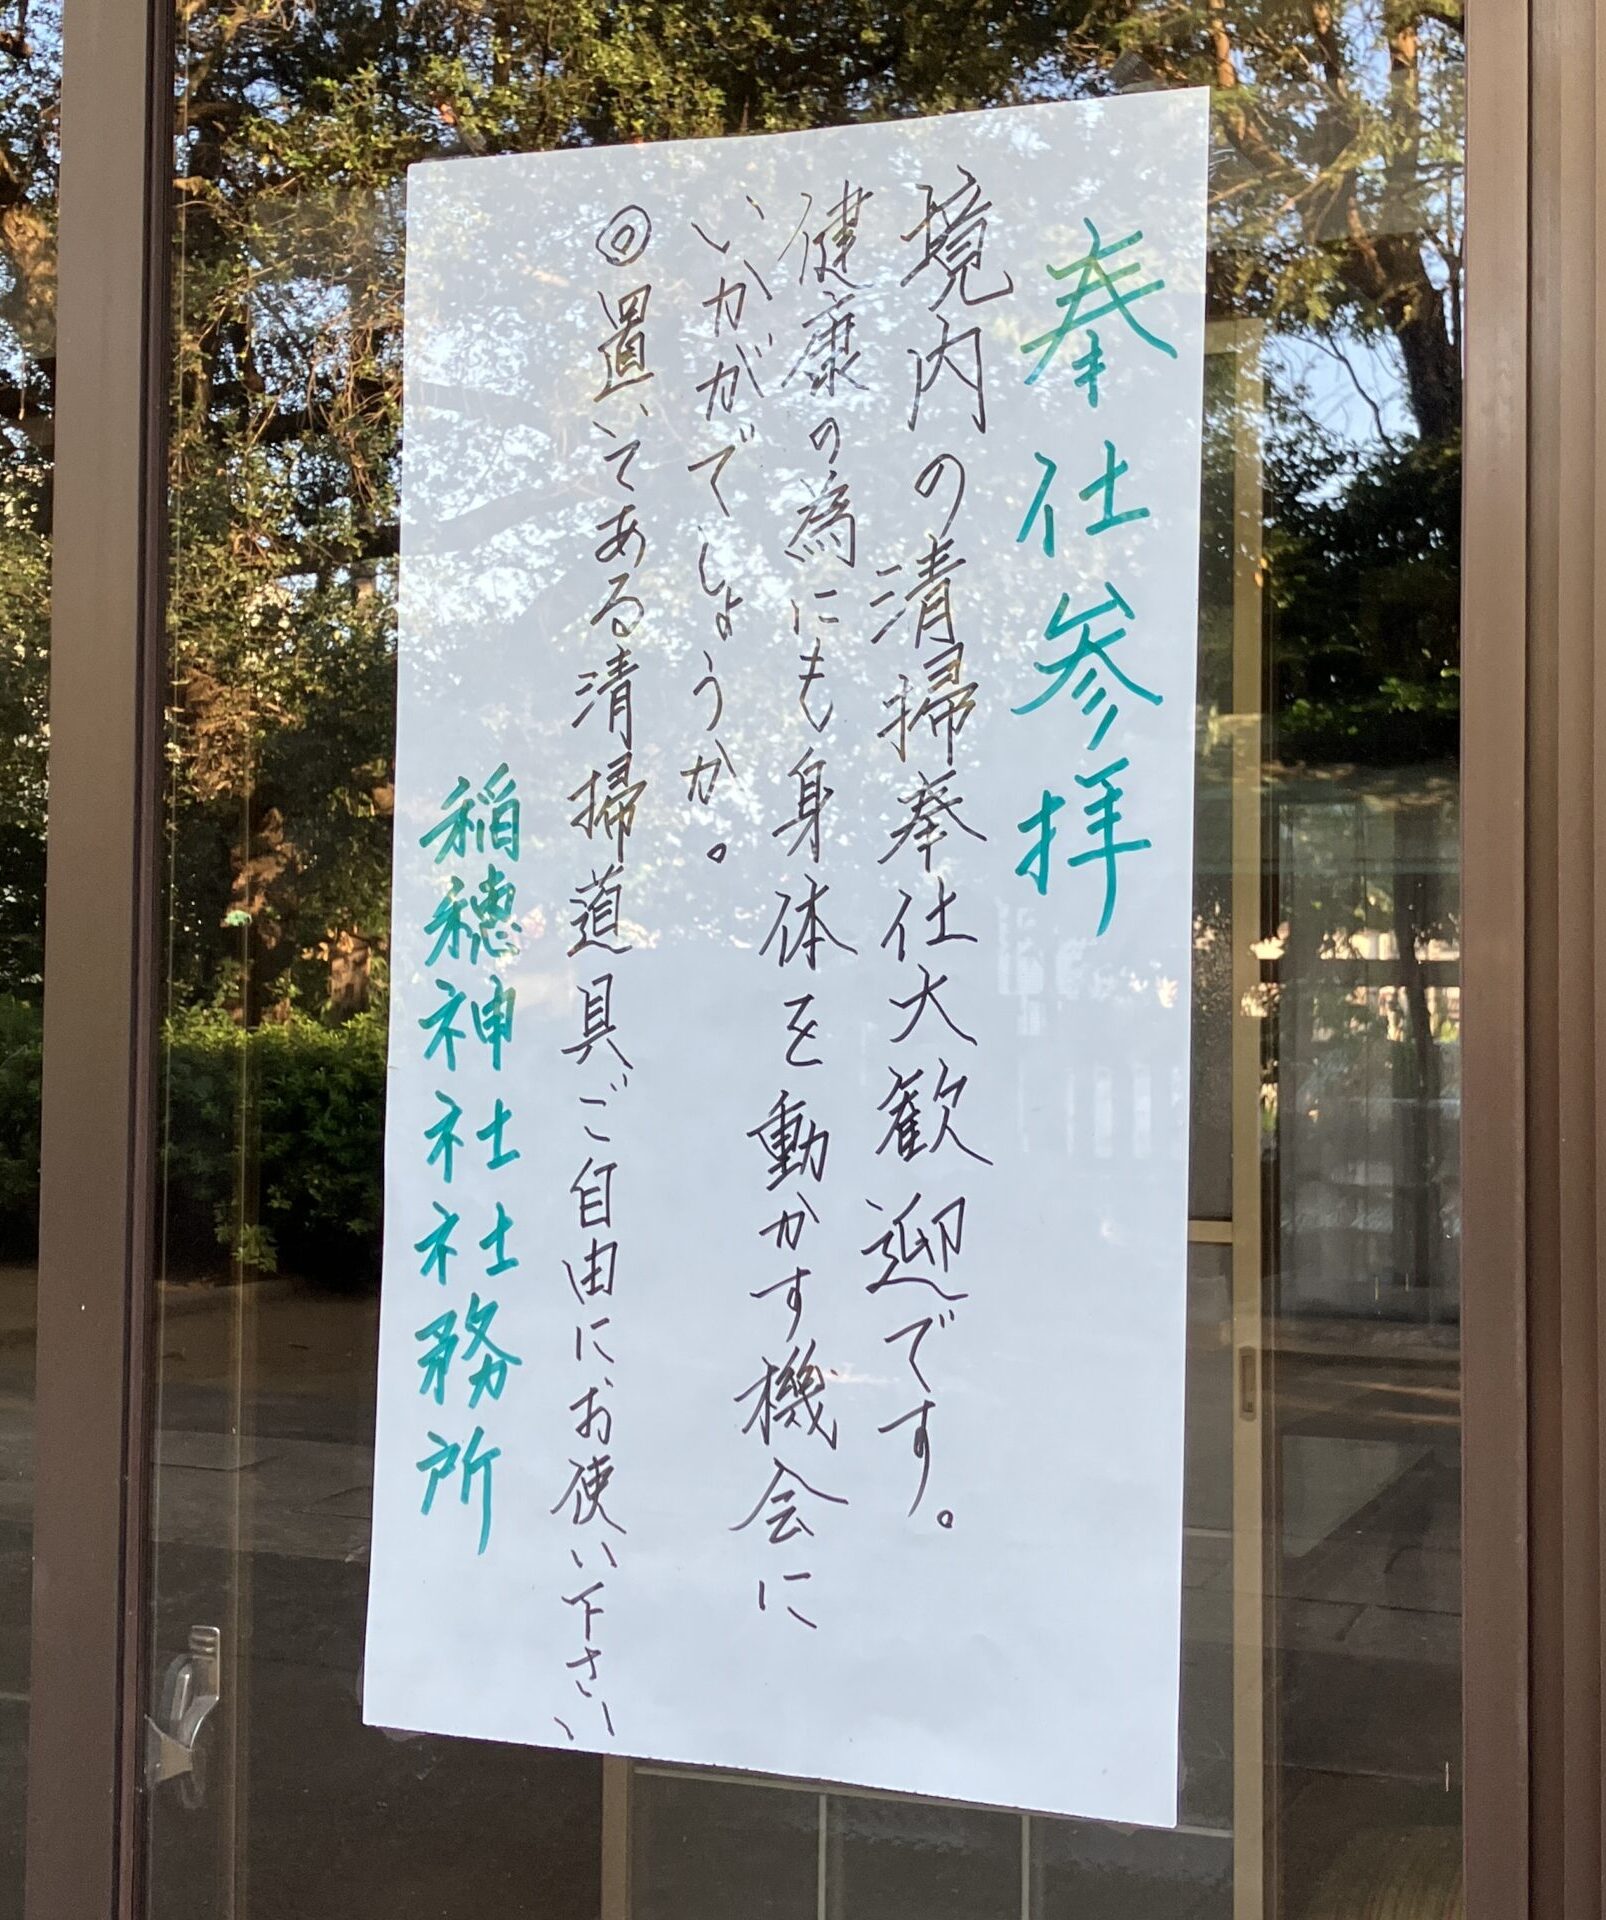 奉仕参拝
境内の清掃奉仕大歓迎です。
健康の為にも身体を動かす機会に
いかがでしょうか。
◎置いてある清掃道具ご自由にお使い下さい
稲穂神社社務所